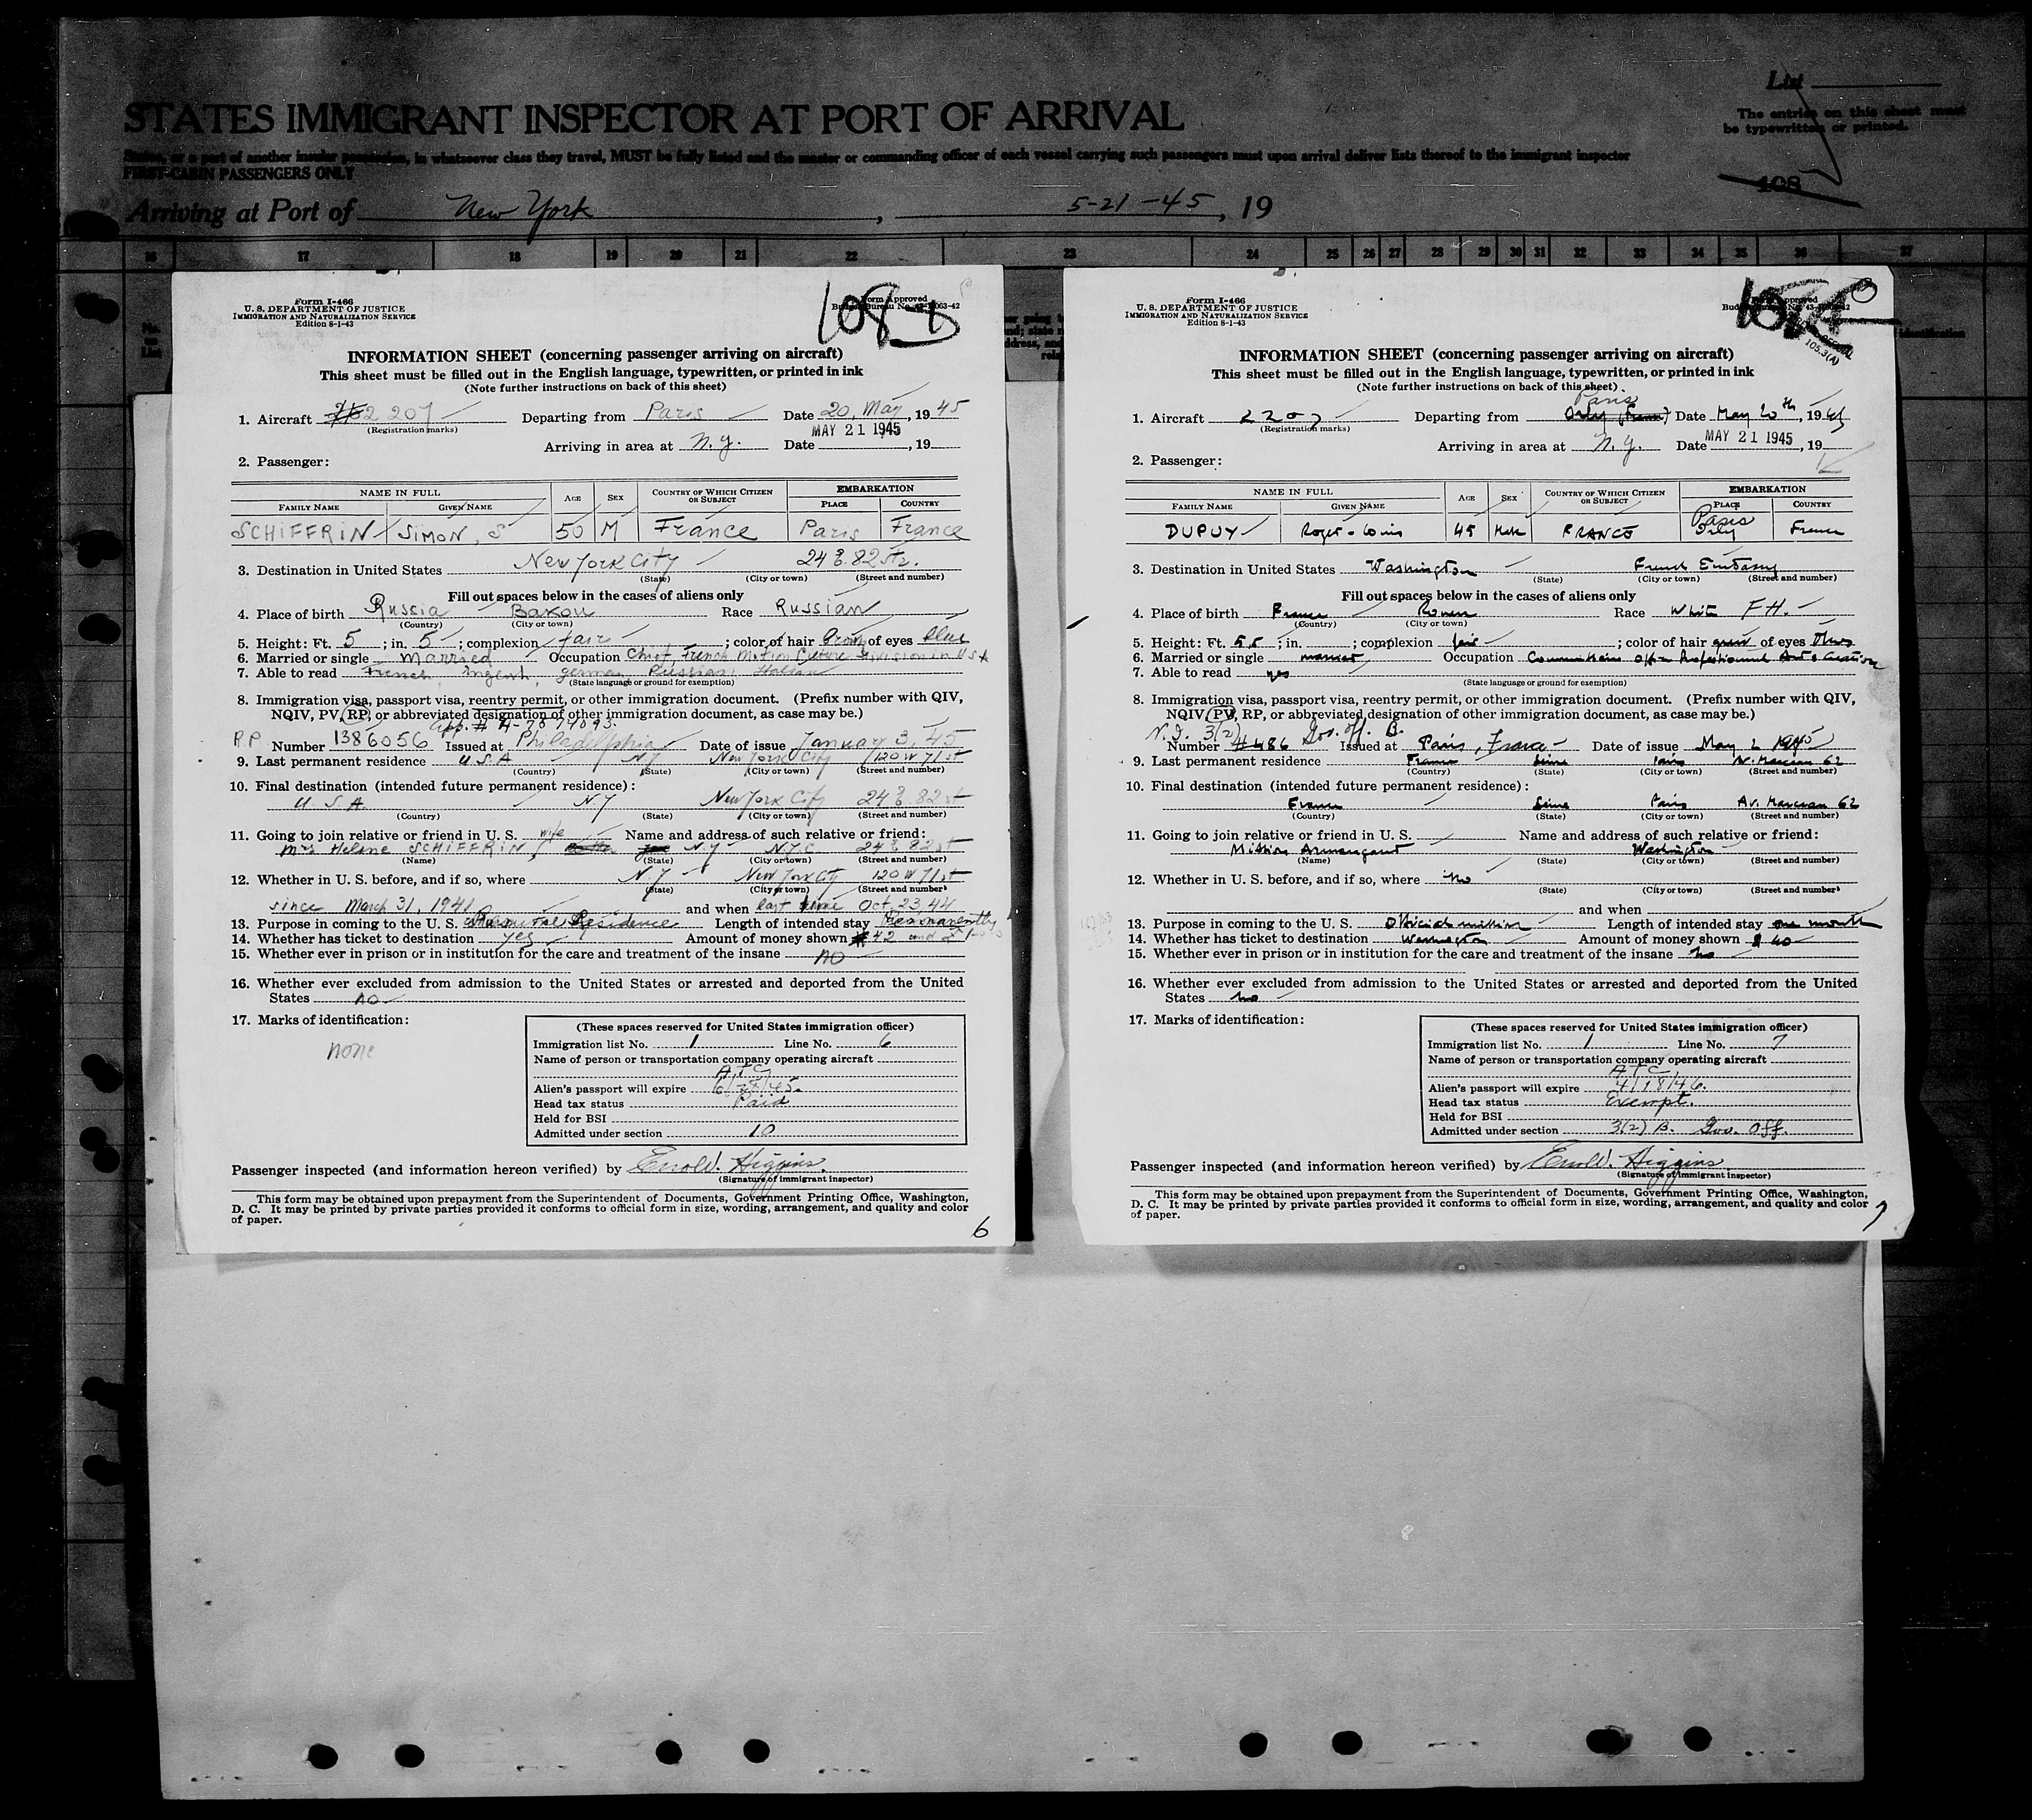 List
STATES IMMIGRANT INSPECTOR AT PORT OF ARRIVAL
The entries on this sheet must
be typewritten or printed.
States, or a part of another insular possession, in whatsoever class they travel, MUST be fully listed and the master or commanding officer of each vessel carrying such passengers must upon arrival deliver lists thereof to the immigrant inspector
FIRST-CABIN PASSENGERS ONLY
108
Arriving at Port of New York, 5-21-45, 19
16 17 18 19 20 21 22 23 24 25 26 27 28 29 30 31 32 33 34 35 36 37
Form I-466
U. S. DEPARTMENT OF JUSTICE
IMMIGRATION AND NATURALIZATION SERVICE
Edition 8-1-43
Form Approved
108
INFORMATION SHEET (concerning passenger arriving on aircraft)
This sheet must be filled out in the English language, typewritten, or printed in ink
(Note further instructions on back of this sheet)
1. Aircraft 2207 Departing from Paris Date 20, May, 1945
(Registration marks)
MAY 21 1945
Arriving in area at N.Y. Date , 19
2. Passenger:
NAME IN FULL AGE SEX COUNTRY OF WHICH CITIZEN OR SUBJECT EMBARKATION
FAMILY NAME GIVEN NAME PLACE COUNTRY
SCHIFFRIN SIMON, S 50 M France Paris France
3. Destination in United States New York City 24 E. 82 Str.
(State) (City or town) (Street and number)
Fill out spaces below in the cases of aliens only
4. Place of birth Russia Bakou Race Russian
(Country) (City or town)
5. Height: Ft. 5; in. 5; complexion fair; color of hair Brown of eyes blue
6. Married or single Married Occupation Chief French Motion Picture Division in USA
7. Able to read French, English, german, Russian, Italian
(State language or ground for exemption)
8. Immigration visa, passport visa, reentry permit, or other immigration document. (Prefix number with QIV,
NQIV, PV, RP, or abbreviated designation of other immigration document, as case may be.)
R.P. Number 1386056 Issued at Philadelphia Date of issue January 3, 45
9. Last permanent residence U.S.A NY New York City 120 W 71 st
(Country) (State) (City or town) (Street and number)
10. Final destination (intended future permanent residence):
U.S.A. NY New York City 24 E. 82 st
(Country) (State) (City or town) (Street and number)
11. Going to join relative or friend in U. S. wife Name and address of such relative or friend:
Mrs Helene SCHIFFRIN, NY N.Y.C 24 E 82 st
(Name) (State) (City or town) (Street and number)
12. Whether in U. S. before, and if so, where NY New York City 120 W 71 st
(State) (City or town) (Street and number)
since March 31, 1941 and when last time Oct. 23, 44
13. Purpose in coming to the U. S. Residence Length of intended stay Permanently
14. Whether has ticket to destination yes Amount of money shown $42
15. Whether ever in prison or in institution for the care and treatment of the insane NO
16. Whether ever excluded from admission to the United States or arrested and deported from the United
States NO
17. Marks of identification:
none
(These spaces reserved for United States immigration officer)
Immigration list No. 1 Line No. 6
Name of person or transportation company operating aircraft
A.T.C.
Alien's passport will expire 6/28/45.
Head tax status Paid
Held for BSI
Admitted under section 10
Passenger inspected (and information hereon verified) by Errol W. Higgins.
(Signature of immigrant inspector)
This form may be obtained upon prepayment from the Superintendent of Documents, Government Printing Office, Washington,
D. C. It may be printed by private parties provided it conforms to official form in size, wording, arrangement, and quality and color
of paper.
6
Form I-466
U. S. DEPARTMENT OF JUSTICE
IMMIGRATION AND NATURALIZATION SERVICE
Edition 8-1-43
105.3(A)
INFORMATION SHEET (concerning passenger arriving on aircraft)
This sheet must be filled out in the English language, typewritten, or printed in ink
(Note further instructions on back of this sheet)
Paris
1. Aircraft 2207 Departing from Orly (France) Date May 20th, 1945
(Registration marks)
MAY 21 1945
Arriving in area at N.Y. Date , 19
2. Passenger:
NAME IN FULL AGE SEX COUNTRY OF WHICH CITIZEN OR SUBJECT EMBARKATION
FAMILY NAME GIVEN NAME PLACE COUNTRY
Paris
DUPUY Roger-Louis 45 Male FRANCE Orly France
3. Destination in United States Washington French Embassy
(State) (City or town) (Street and number)
Fill out spaces below in the cases of aliens only
4. Place of birth France Rouen Race White FH.
(Country) (City or town)
5. Height: Ft. 5,5; in. ; complexion fair; color of hair of eyes
6. Married or single married Occupation
7. Able to read yes
(State language or ground for exemption)
8. Immigration visa, passport visa, reentry permit, or other immigration document. (Prefix number with QIV,
NQIV, PV, RP, or abbreviated designation of other immigration document, as case may be.)
3(2) Gov. Off. B.
Number 486 Issued at Paris, France Date of issue May 2 1945
9. Last permanent residence France Seine Paris Av. Marceau 62
(Country) (State) (City or town) (Street and number)
10. Final destination (intended future permanent residence):
France Seine Paris Av. Marceau 62
(Country) (State) (City or town) (Street and number)
11. Going to join relative or friend in U. S. Name and address of such relative or friend:
Mission Armengaud Washington
(Name) (State) (City or town) (Street and number)
12. Whether in U. S. before, and if so, where no
(State) (City or town) (Street and number)
and when
13. Purpose in coming to the U. S. Official mission Length of intended stay one month
14. Whether has ticket to destination Washington Amount of money shown $ 40
15. Whether ever in prison or in institution for the care and treatment of the insane no
16. Whether ever excluded from admission to the United States or arrested and deported from the United
States no
17. Marks of identification:
(These spaces reserved for United States immigration officer)
Immigration list No. 1 Line No. 7
Name of person or transportation company operating aircraft
A.T.C.
Alien's passport will expire 4/18/46.
Head tax status Exempt.
Held for BSI
Admitted under section 3(2) B. Gov. Off.
Passenger inspected (and information hereon verified) by Errol W. Higgins
(Signature of immigrant inspector)
This form may be obtained upon prepayment from the Superintendent of Documents, Government Printing Office, Washington,
D. C. It may be printed by private parties provided it conforms to official form in size, wording, arrangement, and quality and color
of paper.
7